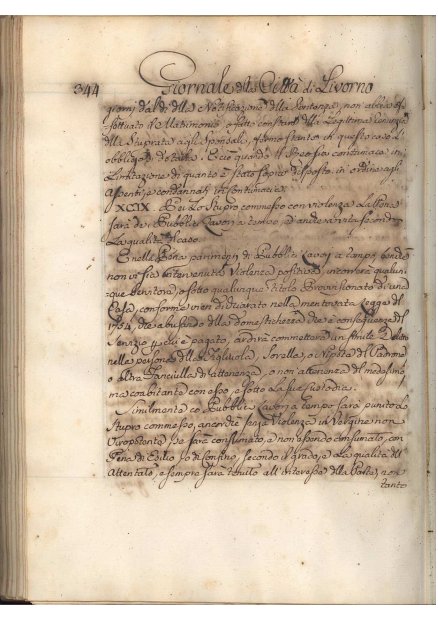 344 Giornale della Città di Livorno
giorni dal dì della Notificazione della Sentenza, non abbia ef-
fettuato il Matrimonio, o fatto constare della Legittima Renunzia
della Stuprata agli Sponsali, fermo stante che in questo caso l'
obbligo di dotarla. Ecco quando il Reo sia contumace in
Limitazione di quanto è stato sopra disposto in ordine agli
Assenti, e condannati in Contumacia
XCIX. Per lo Stupro commesso con violenza la Pena
sarà dei Pubblici Lavori a tempo, ed anche a vita secondo
la qualità del caso
E nella Pena parimente di Pubblici Lavori a tempo, benchè
non vi sia intervenuta violenza positiva incorrerà qualun-
que Servitore, o sotto qualunque titolo Provvisionato di una
Casa, conforme vien dichiarato nella mentovata Legge del
1754, che abusando della domestichezza che è conseguenza del
Servizio per cui è pagato, ardirà commettere un simile Delitto
nelle persone della Figliuola, Sorella, o Nipote del Padrone
o altra Fanciulla di attenenza, o non attenenza del medesimo,
ma coabitante con esso, e sotto la sua custodia.
Similmente co Pubblici Lavori a tempo sarà punito lo
Stupro commesso, ancorchè senza violenza in Vergine non
Viropotente se sarà consumato, e non essendo consumato, con
Pena di Esilio, o di Confino, secondo il grado, e la qualità dell'
Attentato, e sempre sarà tenuto all'interesse della Parte, non
tanto